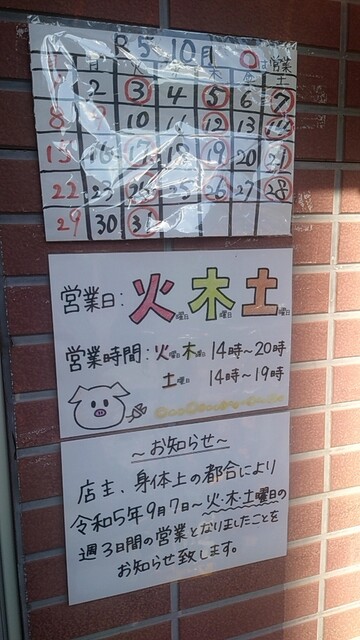 R5 10月 ○は営業
日 月 火 水 木 金 土
1 2 3 4 5 6 7
8 10 11 12 13 14
15 16 17 18 19 20 21
22 23 24 25 26 27 28
29 30 31
営業日: 火曜日 木曜日 土曜日
営業時間: 火曜日 木曜日 14時～20時
土曜日 14時～19時
～お知らせ～
店主、身体上の都合により
令和5年9月7日～火・木・土曜日の
週3日間の営業となりましたことを
お知らせ致します。